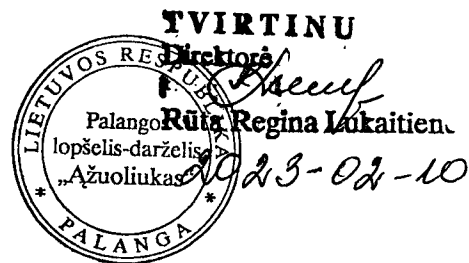 TVIRTINU
Direktorė
Rūta Regina Lukaitien
2023-02-10
LIETUVOS RESPUBLIKA
Palangos
lopšelis-darželis
„Ąžuoliukas
* PALANGA *